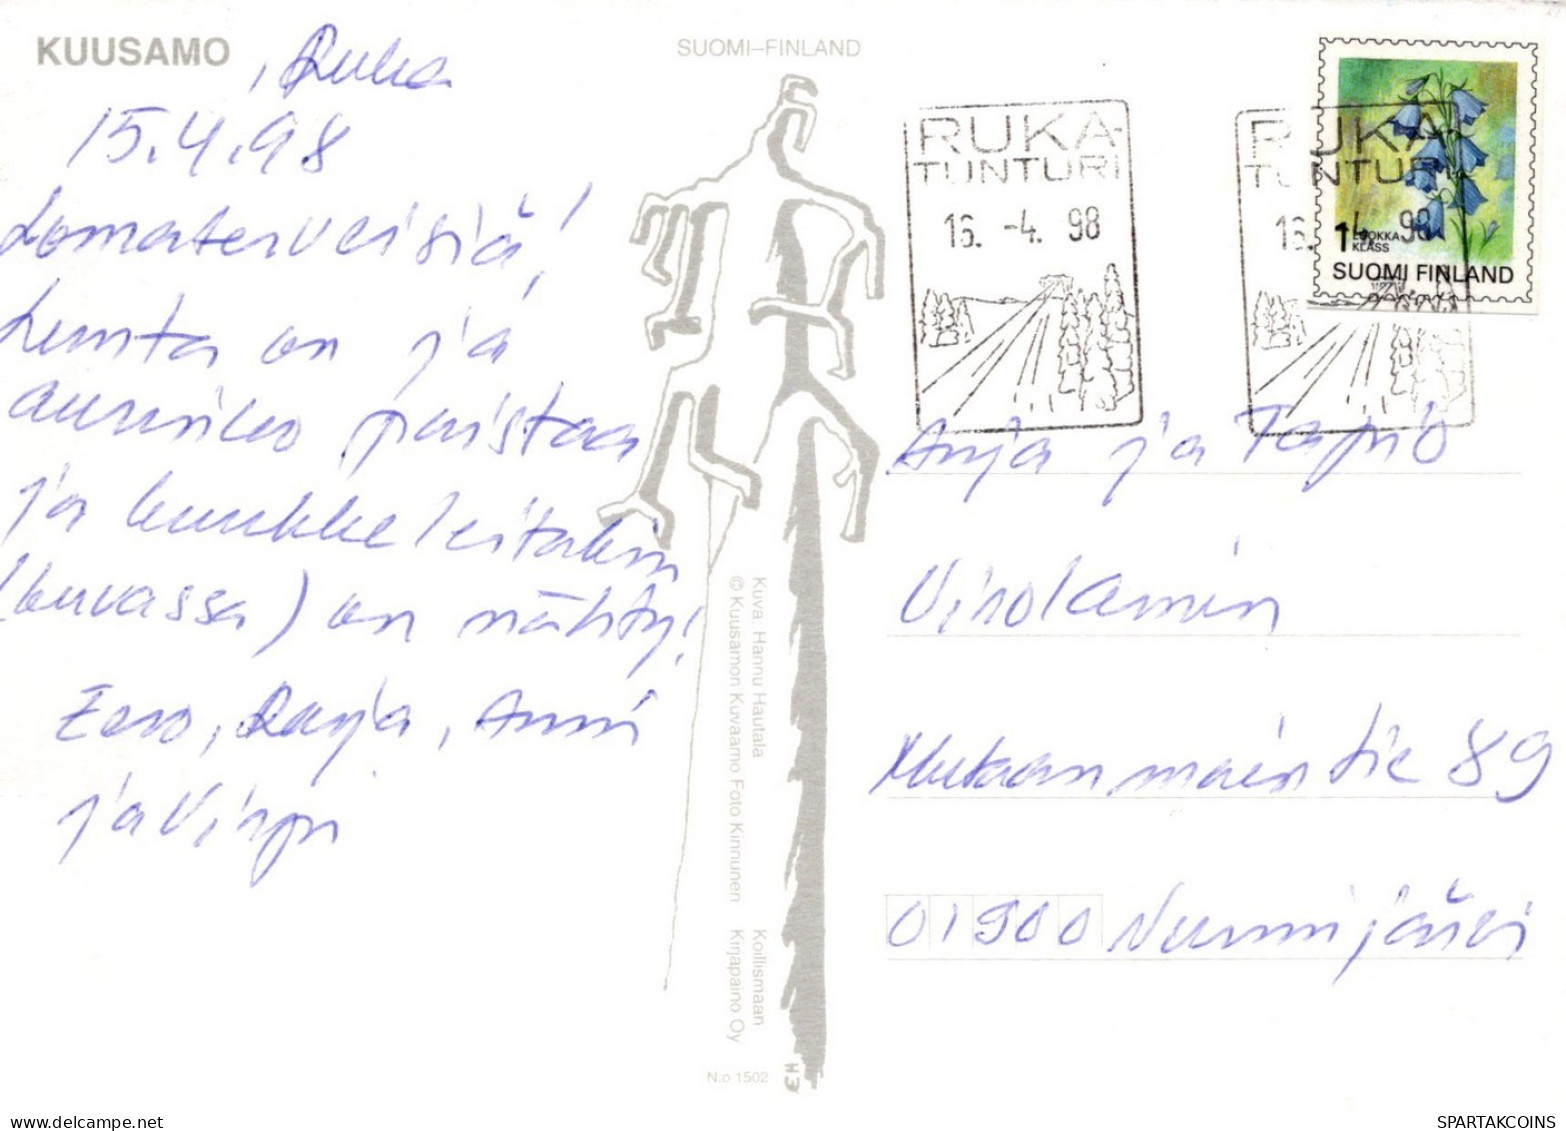 KUUSAMO , Ruka
15.4.98
Lomaterveisiä!
Lunta on ja
aurinko paistaa
ja kuukkeleitakin
(kuvassa) on nähty!
Eero, Raija, Anni
ja Virpi
SUOMI–FINLAND
Kuva: Hannu Hautala
© Kuusamon Kuvaamo Foto Kinnunen
Koillismaan
Kirjapaino Oy
N:o 1502
EH
RUKA-
TUNTURI
16. -4. 98
RUKA
TUNTURI
16. 4. 98
1 LUOKKA
KLASS
SUOMI FINLAND
Anja ja Tapio
Virolainen
89
01900 Nurmijärvi
SPARTAKCOINS